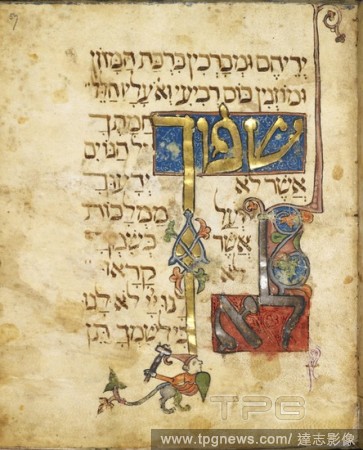 ידיהם ומברכין ברכת המזון
ומוזגין כוס רביעי ואו עליו הלל
שפוך חמתך
אל הגוים
אשר לא ידעוך
ועל ממלכות
אשר בשמך
לא קראו
לא לנו יי לא לנו
כי לשמך תן
TPG
www.tpgnews.com/ 達志影像